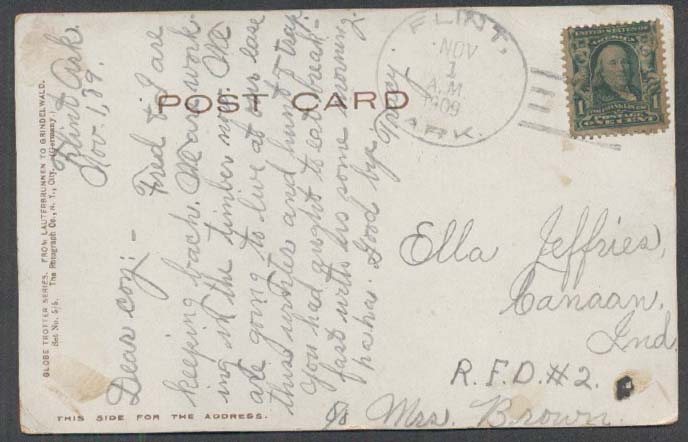 POST CARD
FLINT,
NOV
1
A.M
1909
ARK.
UNITED STATES OF AMERICA
1 1
ONE CENT
GLOBE TROTTER SERIES. FROM LAUTERBRUNNEN TO GRINDELWALD.
Set No. 5/6. The Rotograph Co., N. Y., City. (Germany.)
Flint Ark.
Nov. 1, '09.
Dear coz: - Fred & I are
keeping bach. We are work-
ing in the timber now. We
are going to live at our ease
this winter and hunt & trap.
You had ought to eat break-
fast with us some morning.
haha. Good bye.
Ella Jeffries,
Canaan,
Ind.
R.F.D.#2.
c/o Mrs. Brown.
THIS SIDE FOR THE ADDRESS.